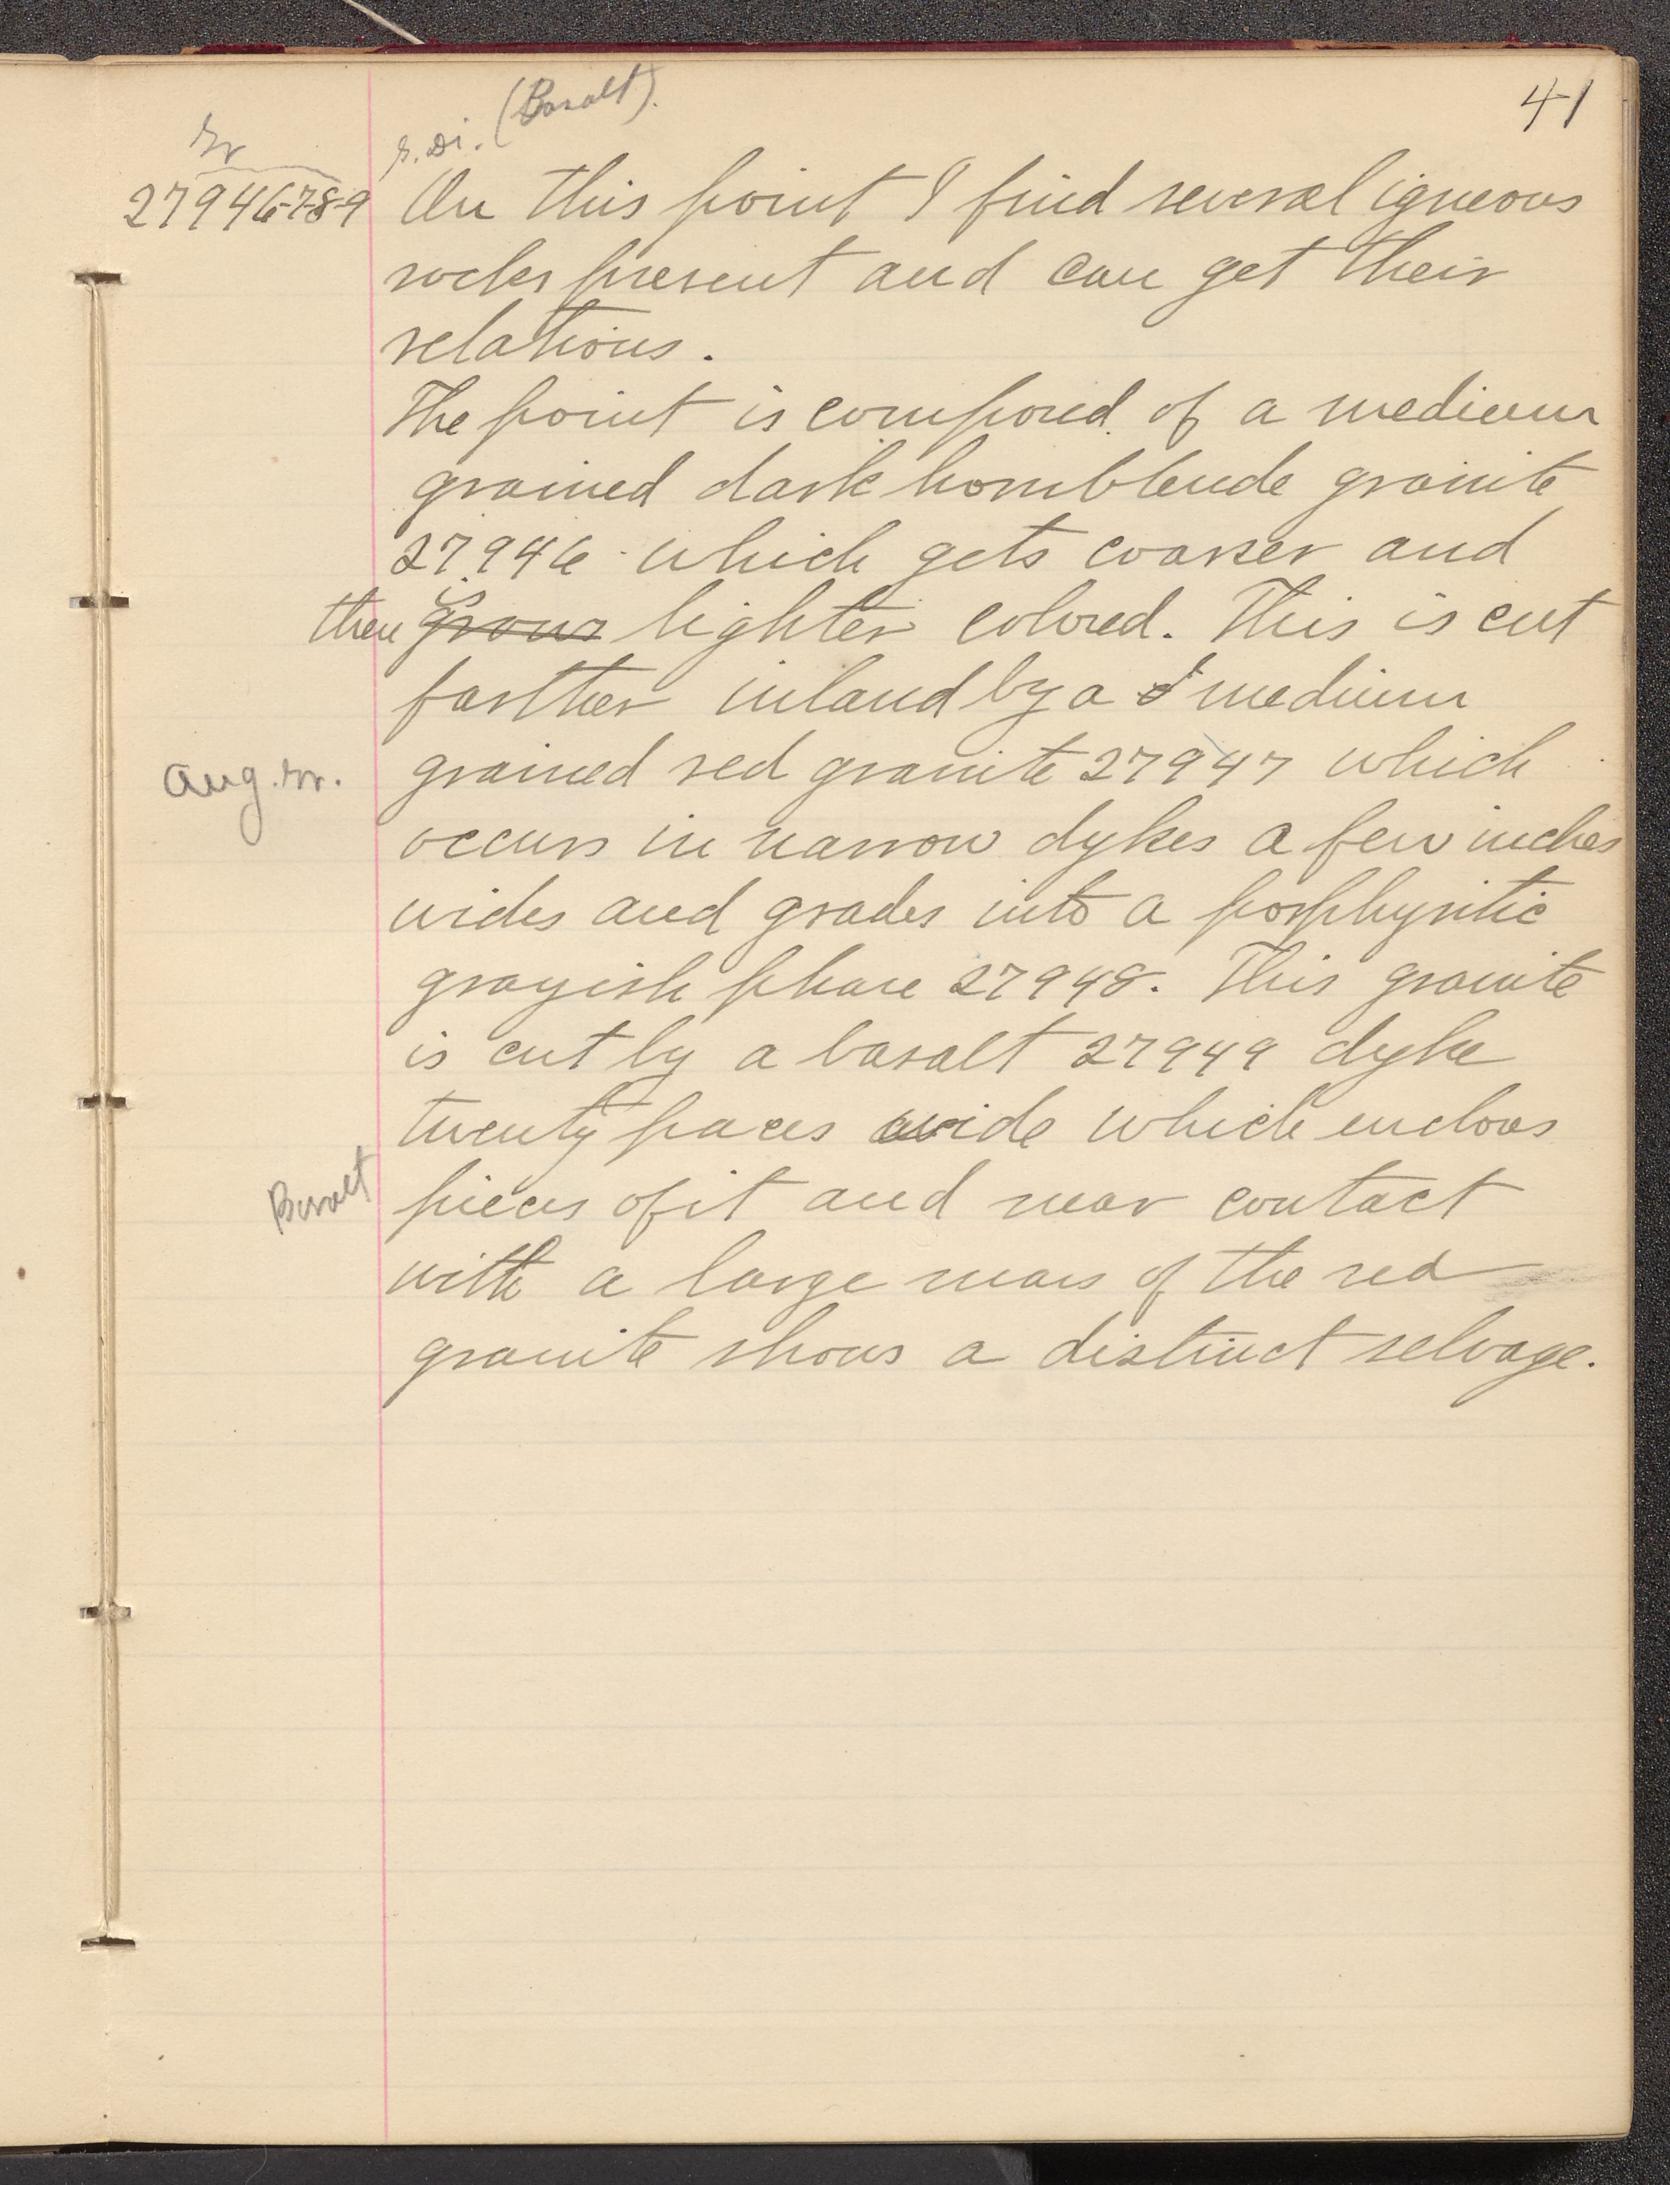 41
(Basalt).
Gr
27946-7-8-9
On this point I find several igneous
rocks present and can get their
relations.
The point is composed of a medium
grained dark hornblende granite
27946 which gets coarser and
then grows lighter colored. This is cut
farther inland by a medium
Aug. gr.
grained red granite 27947 which
occurs in narrow dykes a few inches
wides and grades into a porphyritic
grayish phase 27948. This granite
is cut by a basalt 27949 dyke
twenty paces wide which encloses
Basalt
pieces of it and near contact
with a large mass of the red
granite shows a distinct selvage.